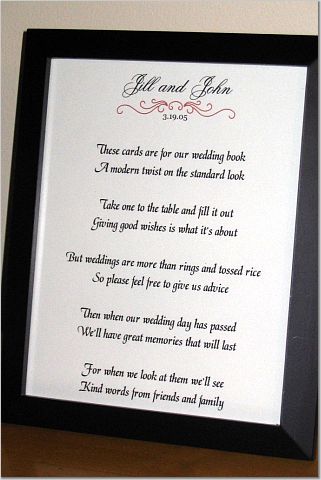 Jill and John
3.19.05
These cards are for our wedding book
A modern twist on the standard look
Take one to the table and fill it out
Giving good wishes is what it's about
But weddings are more than rings and tossed rice
So please feel free to give us advice
Then when our wedding day has passed
We'll have great memories that will last
For when we look at them we'll see
Kind words from friends and family